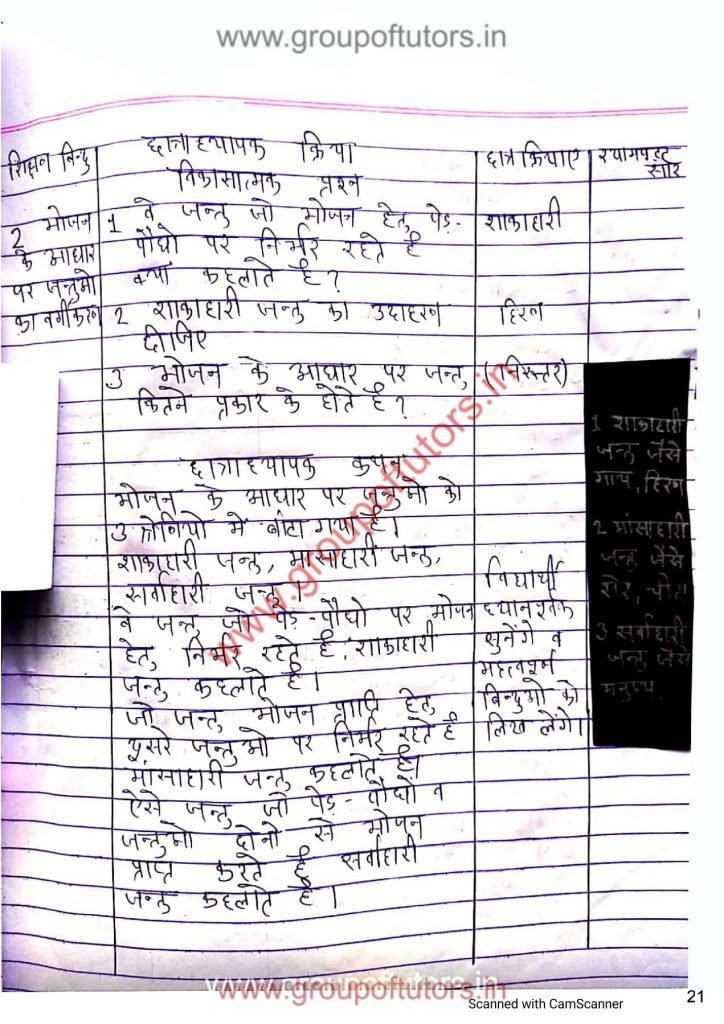 www.groupoftutors.in
शिक्षन बिन्दु
छात्राध्यापक क्रिया
छात्र क्रियाए
श्यामपट्ट
सार
विकासात्मक प्रश्न
2 भोजन
के आधार
पर जन्तुओ
का वर्गीकरन
1 वे जन्तु जो भोजन हेतु पेड-
पौधो पर निर्भर रहते है
क्या कहलाते है?
शाकाहारी
2 शाकाहारी जन्तु का उदाहरन
दीजिए
हिरन
3 भोजन के आधार पर जन्तु
कितने प्रकार के होते है?
(निरूत्तर)
छात्राध्यापक कथन
भोजन के आधार पर जन्तुओ को
3 श्रेनियो मे बांटा गया है।
शाकाहारी जन्तु, मांसाहारी जन्तु,
सर्वाहारी जन्तु।
वे जन्तु जो पेड-पौधो पर भोजन
हेतु निर्भर रहते है, शाकाहारी
जन्तु कहलाते है।
जो जन्तु भोजन प्राप्ति हेतु
दूसरे जन्तुओ पर निर्भर रहते है
मांसाहारी जन्तु कहलाते है।
ऐसे जन्तु जो पेड-पौधो व
जन्तुओ दोनो से भोजन
प्राप्त करते है सर्वाहारी
जन्तु कहलाते है।
विद्यार्थी
ध्यानपूर्वक
सुनेंगे व
महत्वपूर्ण
बिन्दुओ को
लिख लेगे।
1 शाकाहारी
जन्तु जैसे
गाय, हिरन
2 मांसाहारी
जन्तु जैसे
शेर, चीता
3 सर्वाहारी
जन्तु जैसे
मनुष्य
www.groupoftutors.in
www.groupoftutors.in
Scanned with CamScanner
21